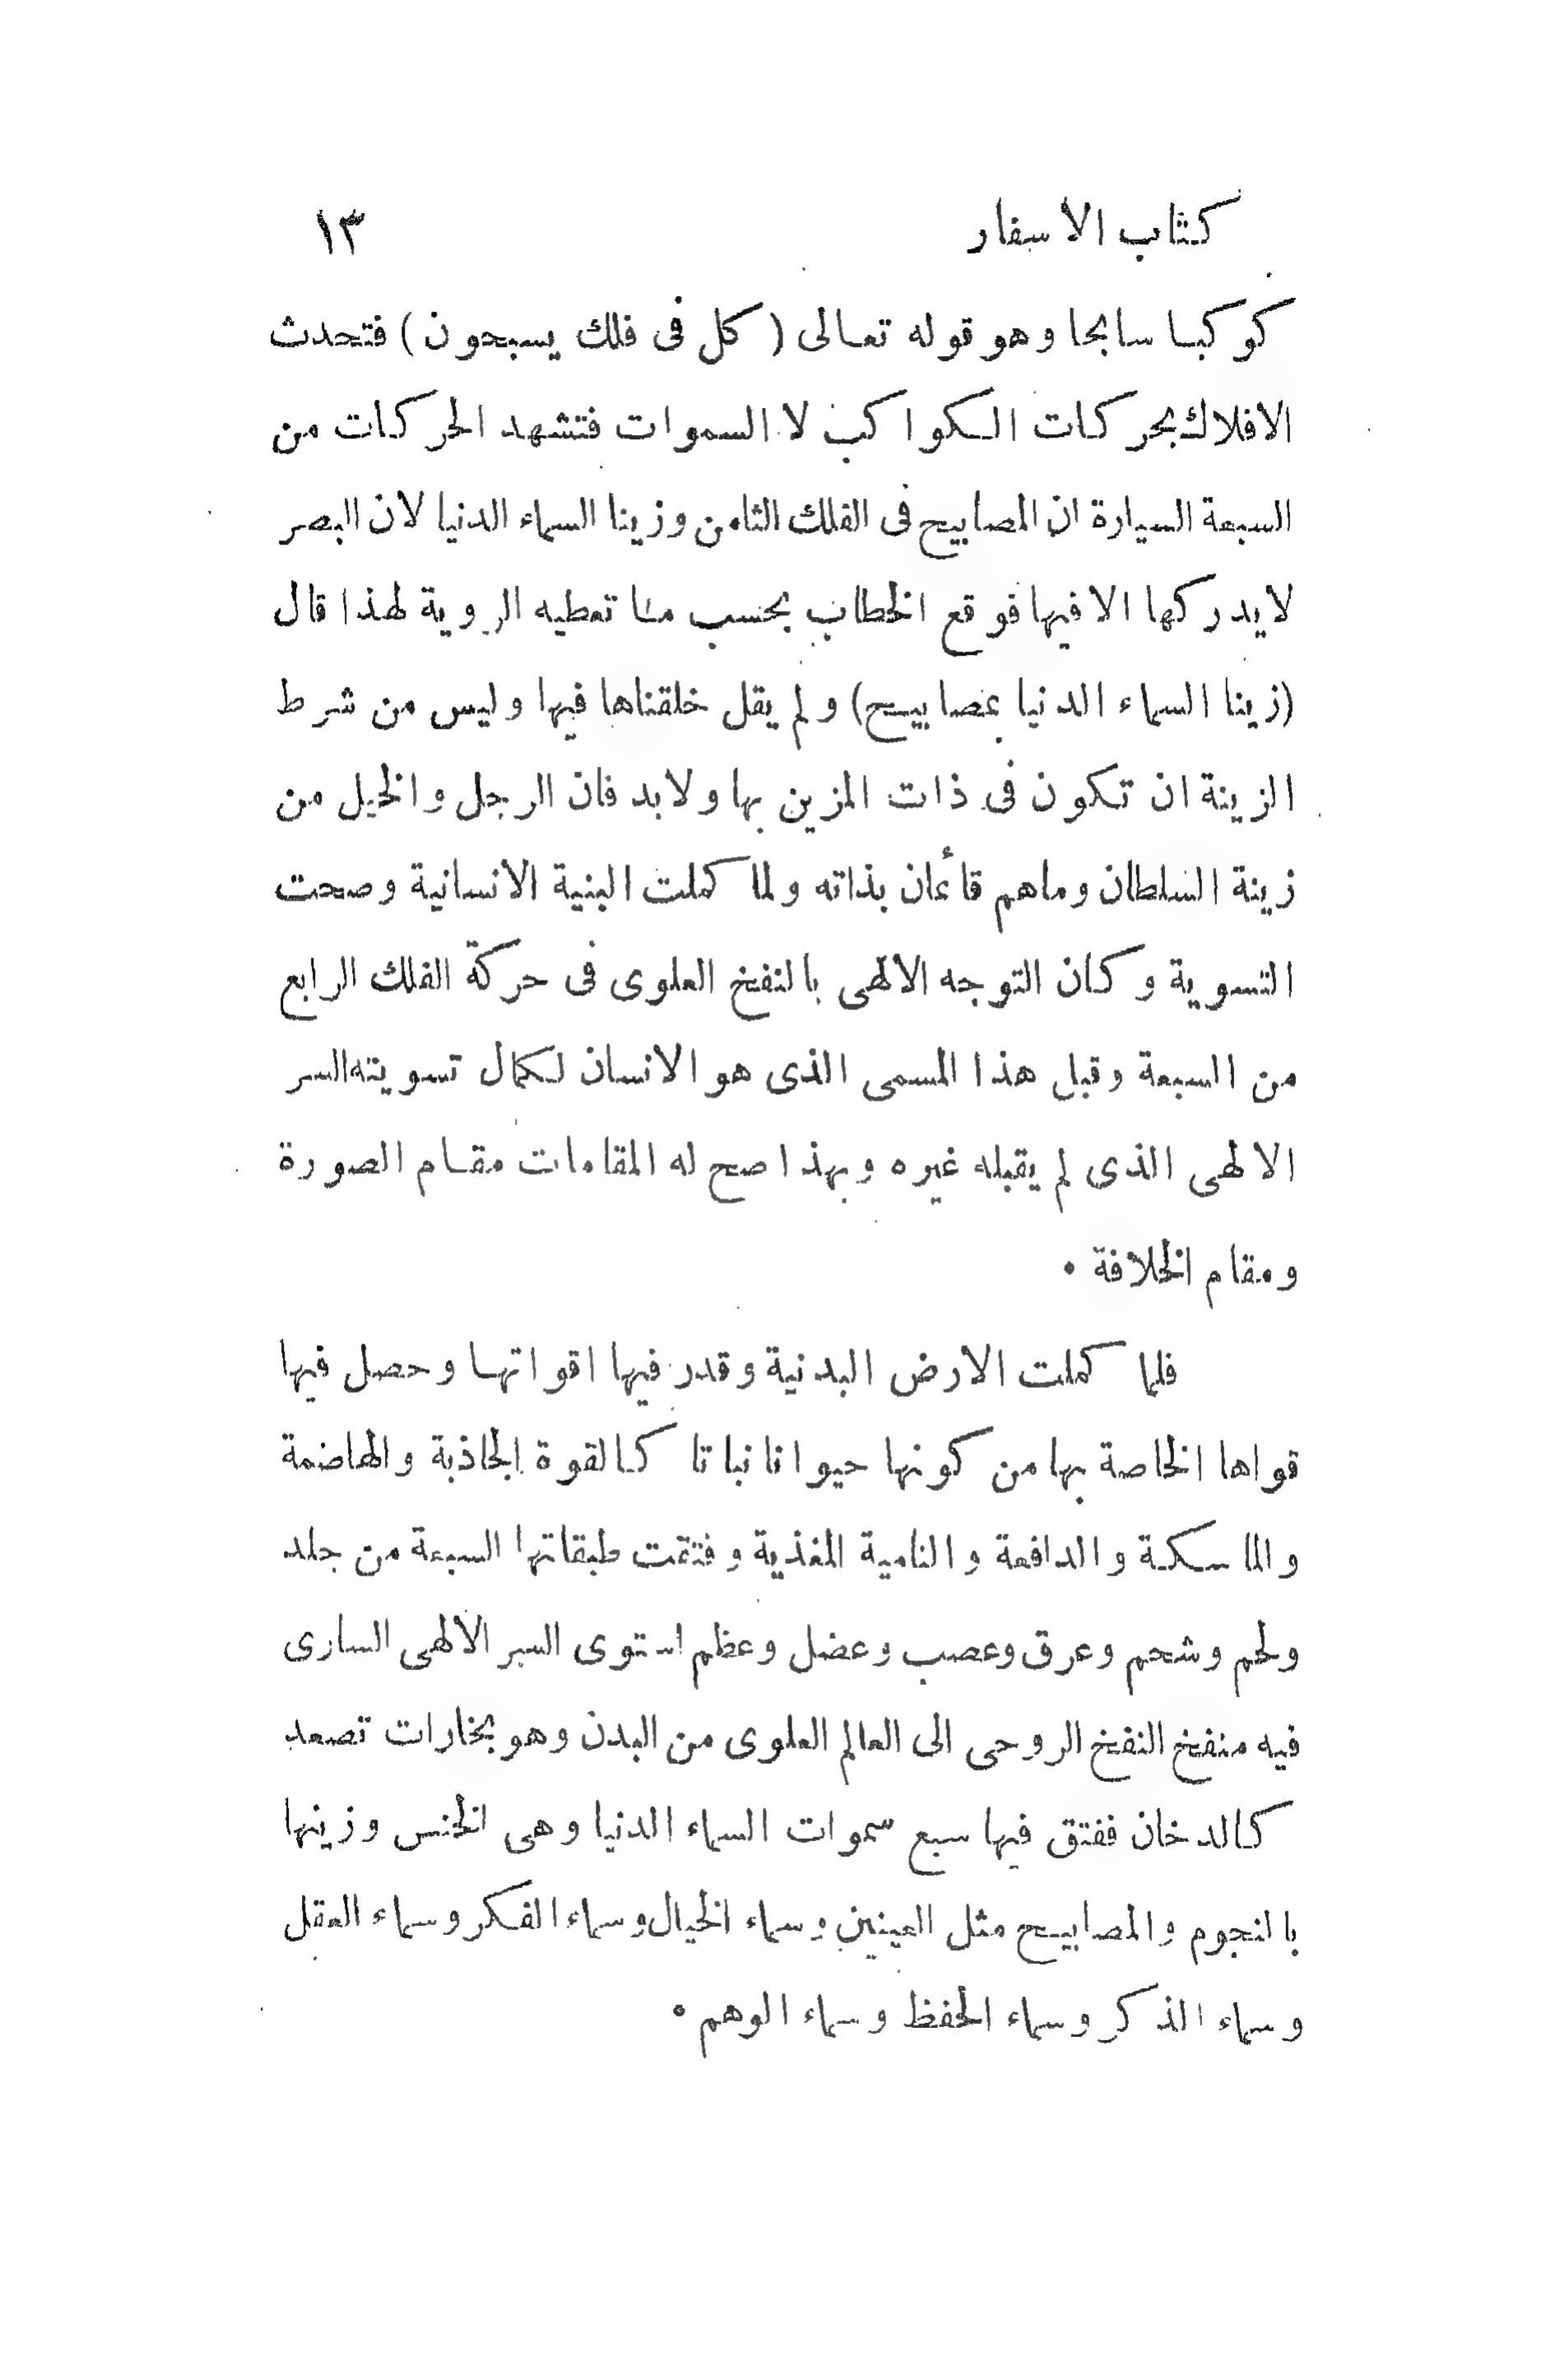 كتاب الاسفار ١٣
كوكبا سابحا وهو قوله تعالى (كل فى فلك يسبحون) فتحدث
الافلاك بحركات الكواكب لا السموات فتشهد الحركات من
السبعة السيارة ان المصابيح فى الفلك الثامن وزينا السماء الدنيا لان البصر
لا يدركها الا فيها فوقع الخطاب بحسب ما تعطيه الروية لهذا قال
(زينا السماء الدنيا بمصابيح) ولم يقل خلقناها فيها وليس من شرط
الزينة ان تكون فى ذات المزين بها ولابد فان الرجل والخيل من
زينة السلطان وماهم قائمان بذاته ولما كملت البنية الانسانية وصحت
التسوية وكان التوجه الالهى بالنفخ العلوى فى حركة الفلك الرابع
من السبعة وقبل هذا المسمى الذى هو الانسان لكمال تسويته السر
الالهى الذى لم يقبله غيره وبهذا صح له المقامات مقام الصورة
ومقام الخلافة ٠
فلما كملت الارض البدنية وقدر فيها اقواتها وحصل فيها
قواها الخاصة بها من كونها حيوانا نباتا كالقوة الجاذبة والهاضمة
والماسكة والدافعة والنامية المغذية وفتقت طبقاتها السبعة من جلد
ولحم وشحم وعرق وعصب وعضل وعظم استوى السر الالهى السارى
فيه منفخ النفخ الروحى الى العالم العلوى من البدن وهو بخارات تصعد
كالدخان ففتق فيها سبع سموات السماء الدنيا وهى الخنس وزينها
بالنجوم والمصابيح مثل العينين وسماء الخيال وسماء الفكر وسماء العقل
وسماء الذكر وسماء الحفظ وسماء الوهم ٠